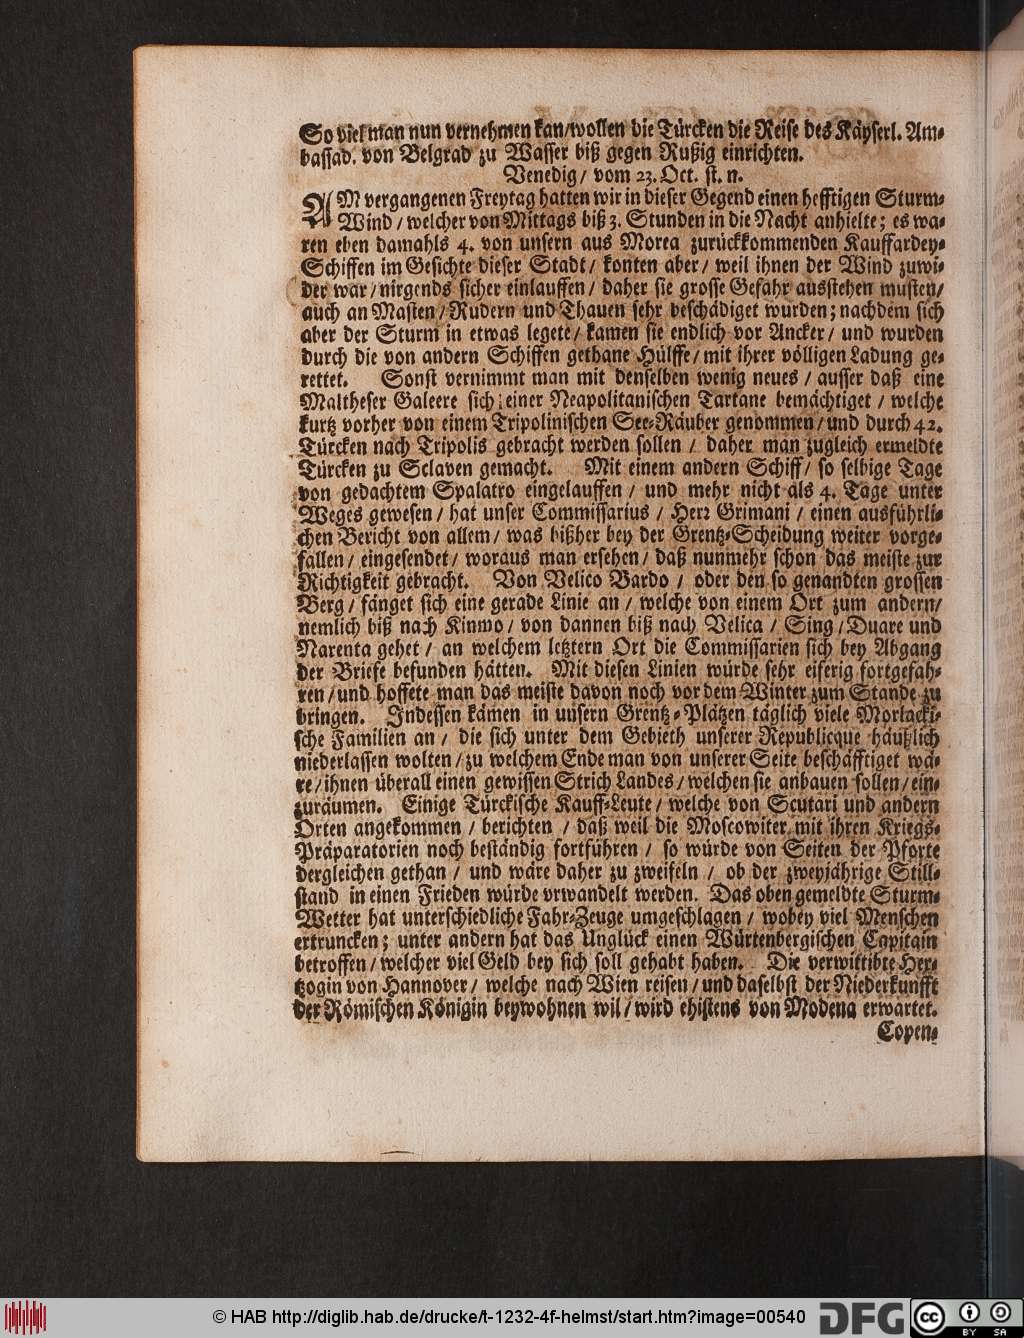 So viel man nun vernehmen kan/wollen die Türcken die Reise des Käyserl. Am-
bassad. von Belgrad zu Wasser biß gegen Rußig einrichten.
Venedig/ vom 23. Oct. st. n.
AM vergangenen Freytag hatten wir in dieser Gegend einen hefftigen Sturm-
Wind / welcher von Mittags biß 3. Stunden in die Nacht anhielte; es wa-
ren eben damahls 4. von unsern aus Morea zurückkommenden Kauffardey-
Schiffen im Gesichte dieser Stadt/ konten aber/ weil ihnen der Wind zuwi-
der war/nirgends sicher einlauffen/ daher sie grosse Gefahr ausstehen musten/
auch an Masten/Rudern und Thauen sehr beschädiget wurden; nachdem sich
aber der Sturm in etwas legete/ kamen sie endlich vor Ancker/ und wurden
durch die von andern Schiffen gethane Hülffe/mit ihrer völligen Ladung ge-
rettet. Sonst vernimmt man mit denselben wenig neues / ausser daß eine
Maltheser Galeere sich einer Neapolitanischen Tartane bemächtiget / welche
kurtz vorher von einem Tripolinischen See-Räuber genommen/und durch 42.
Türcken nach Tripolis gebracht werden sollen / daher man zugleich ermeldte
Türcken zu Sclaven gemacht. Mit einem andern Schiff/ so selbige Tage
von gedachtem Spalatro eingelauffen / und mehr nicht als 4. Tage unter
Weges gewesen/ hat unser Commissarius / Herr Grimani / einen ausführli-
chen Bericht von allem/ was bißher bey der Grentz-Scheidung weiter vorge-
fallen/ eingesendet/ woraus man ersehen/ daß nunmehr schon das meiste zur
Richtigkeit gebracht. Von Velico Bardo / oder den so genandten grossen
Berg / fänget sich eine gerade Linie an / welche von einem Ort zum andern/
nemlich biß nach Kinmo/ von dannen biß nach Velica / Sing/Duare und
Narenta gehet/ an welchem letztern Ort die Commissarien sich bey Abgang
der Briefe befunden hätten. Mit diesen Linien würde sehr eiferig fortgefah-
ren/und hoffete man das meiste davon noch vor dem Winter zum Stande zu
bringen. Indessen kämen in unsern Grentz-Plätzen täglich viele Morlacki-
sche Familien an/ die sich unter dem Gebieth unserer Republicque häußlich
niederlassen wolten/zu welchem Ende man von unserer Seite beschäfftiget wä-
re/ihnen überall einen gewissen Strich Landes/welchen sie anbauen sollen/ein-
zuräumen. Einige Türckische Kauff-Leute/ welche von Scutari und andern
Orten angekommen / berichten / daß weil die Moscowiter mit ihren Kriegs-
Präparatorien noch beständig fortführen / so würde von Seiten der Pforte
dergleichen gethan/ und wäre daher zu zweifeln/ ob der zweyjährige Still-
stand in einen Frieden würde vrwandelt werden. Das oben gemeldte Sturm-
Wetter hat unterschiedliche Fahr-Zeuge umgeschlagen/ wobey viel Menschen
ertruncken; unter andern hat das Unglück einen Würtenbergischen Capitain
betroffen/welcher viel Geld bey sich soll gehabt haben. Die verwittibte Her-
tzogin von Hannover/ welche nach Wien reisen/und daselbst der Niederkunfft
der Römischen Königin beywohnen wil/wird ehistens von Modena erwartet.
Copen-
© HAB http://diglib.hab.de/drucke/t-1232-4f-helmst/start.htm?image=00540
DFG
cc BY SA